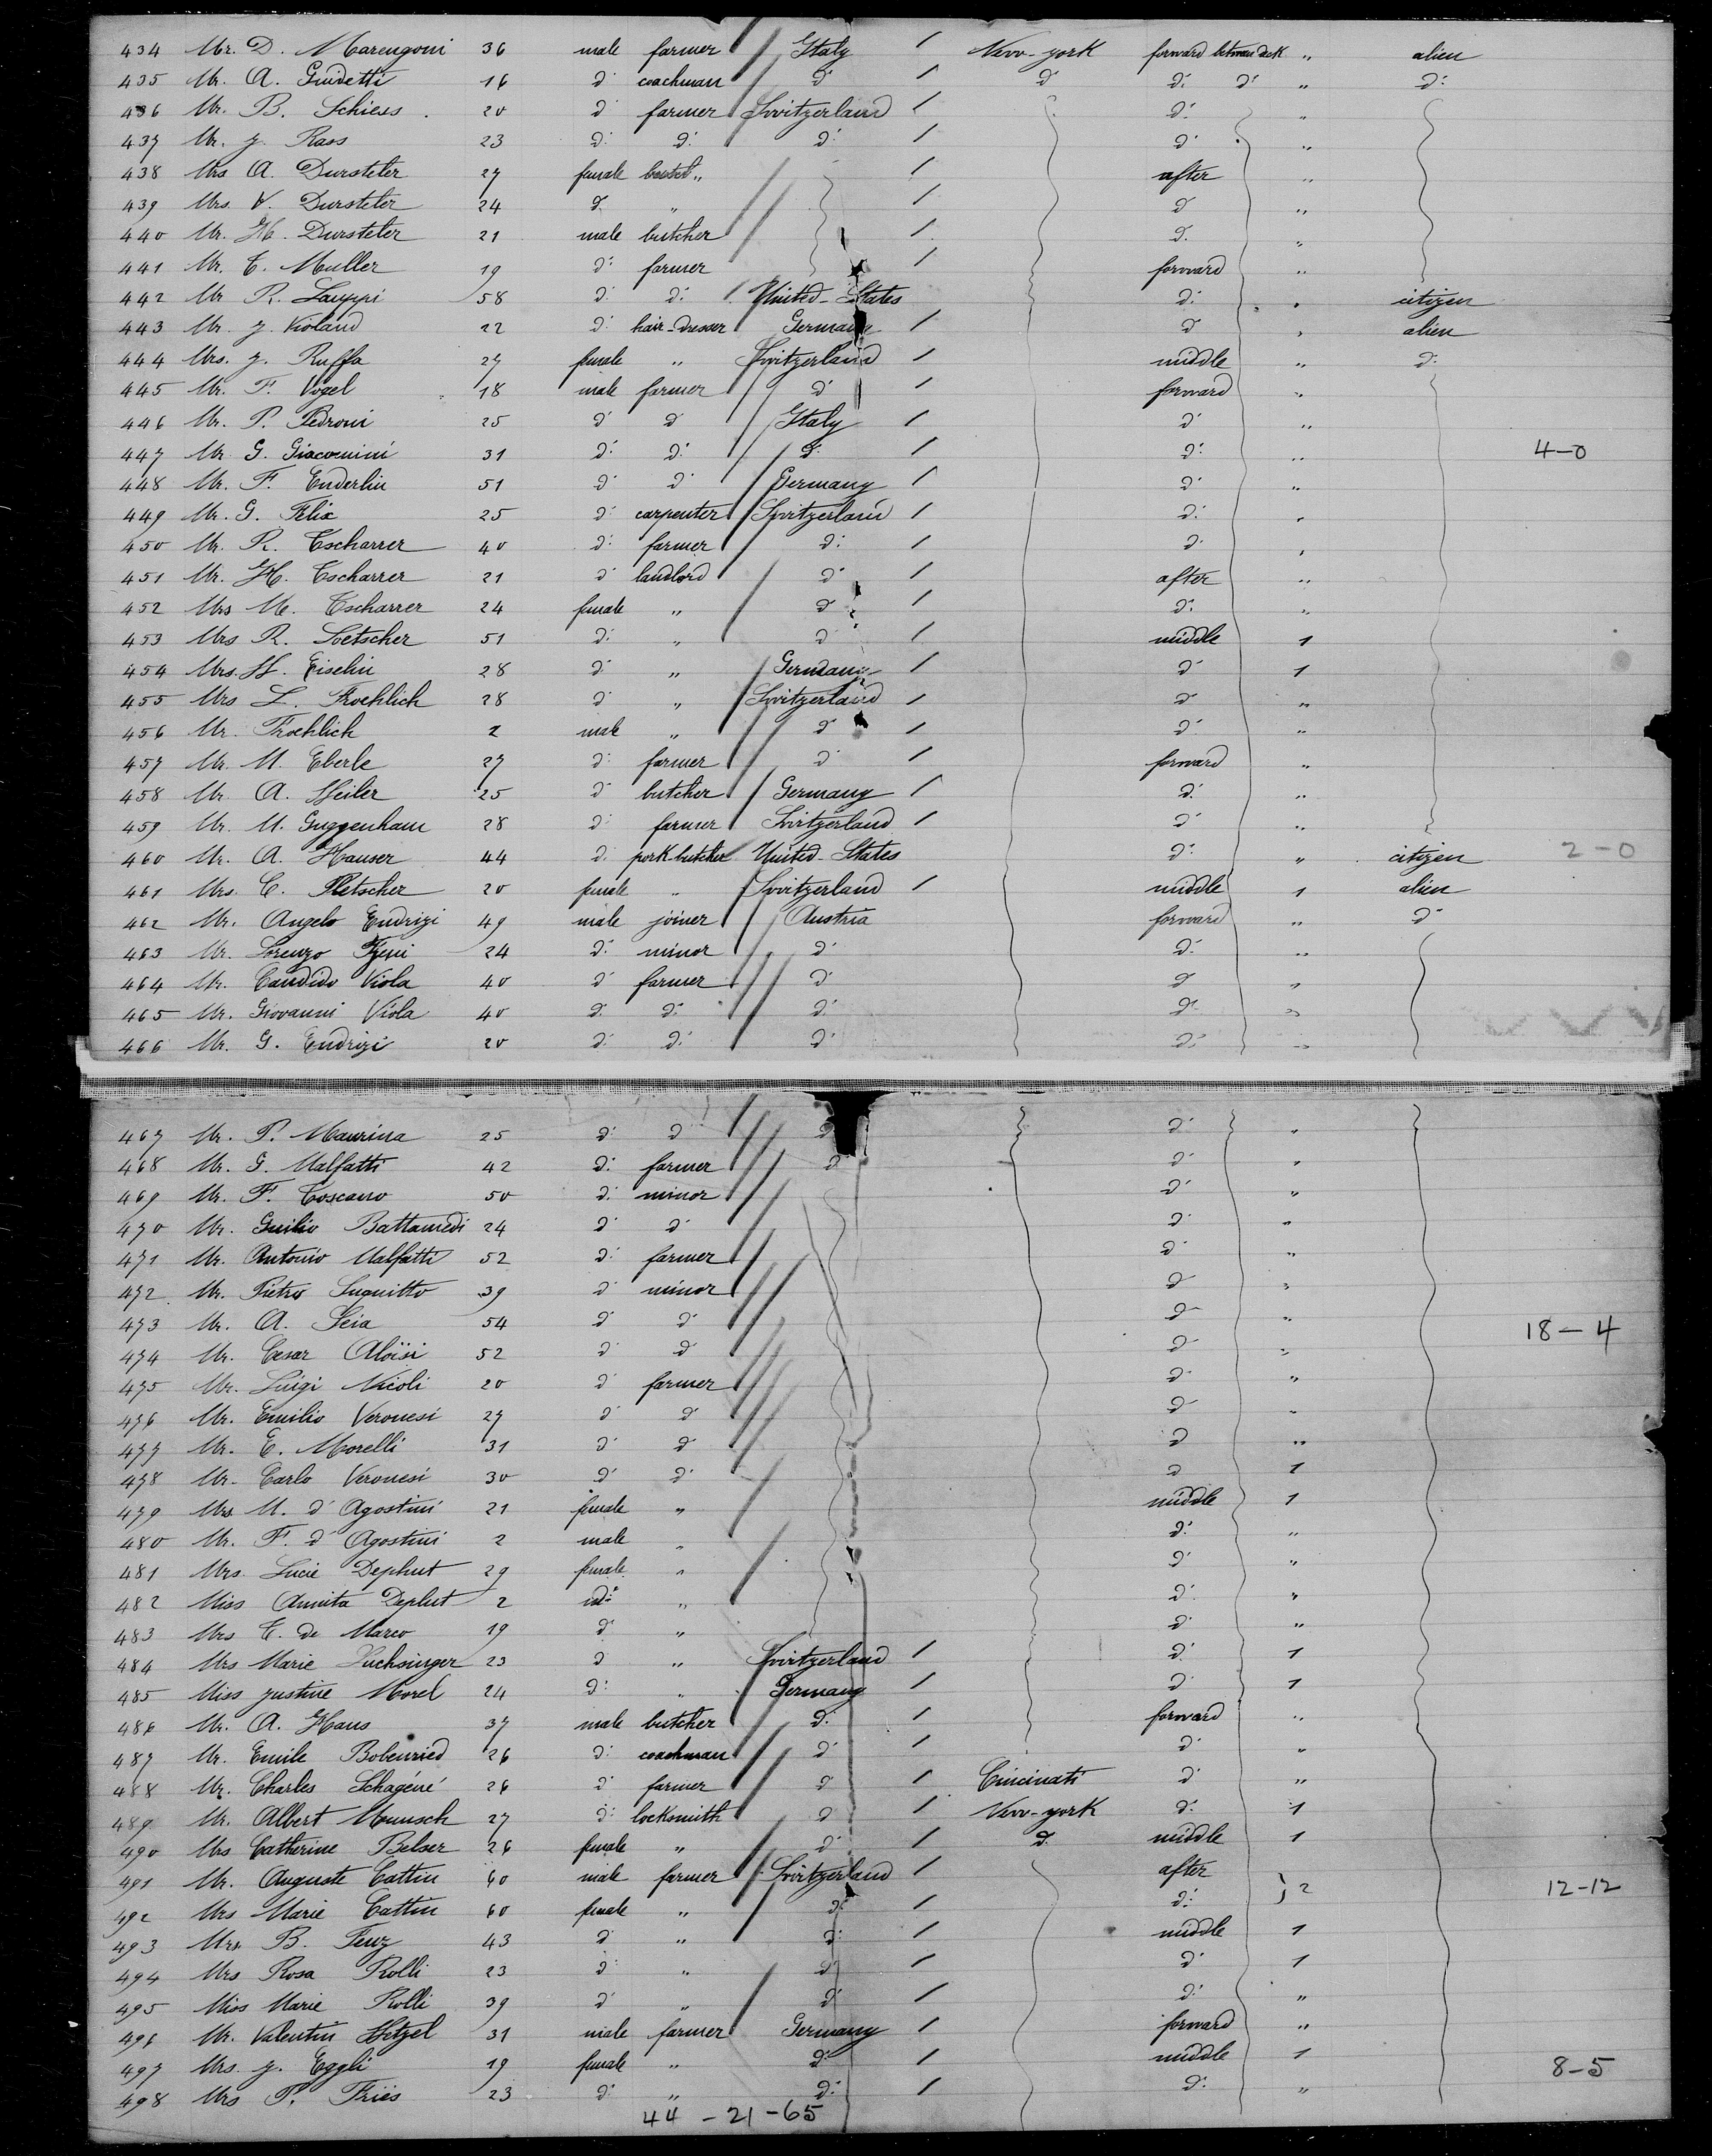 434 Mr. D. Marengoni 36 male farmer Italy / New-york forward between deck " alien
435 Mr. A. Guidetti 16 d° coachman d° / d° d° d° " d°
436 Mr. B. Schiess 20 d° farmer Switzerland / d° "
437 Mr. J. Rass 23 d° d° d° / d° "
438 Mrs A. Dursteler 27 female " / after "
439 Mrs. V. Dursteler 24 d° " / d° "
440 Mr. H. Dursteler 21 male butcher / d° "
441 Mr. E. Muller 19 d° farmer / forward "
442 Mr R. Lauppi 58 d° d° United-States d° " citizen
443 Mr. J. Violand 22 d° hair-dresser Germany / d° " alien
444 Mrs. J. Ruffa 27 female " Switzerland / middle " d°
445 Mr. F. Vogel 18 male farmer d° / forward "
446 Mr. P. Pedroni 25 d° d° Italy / d° "
447 Mr. G. Giacomini 31 d° d° d° / d° " 4-0
448 Mr. F. Enderlin 51 d° d° Germany / d° "
449 Mr. G. Felix 25 d° carpenter Switzerland / d° "
450 Mr. R. Tscharrer 40 d° farmer d° / d° "
451 Mr. H. Tscharrer 21 d° landlord d° / after "
452 Mrs M. Tscharrer 24 female " d° / d° "
453 Mrs R. Loetscher 51 d° " d° / middle 1
454 Mrs. H. Eiselin 28 d° " Germany / d° 1
455 Mrs L. Froehlich 28 d° " Switzerland / d° "
456 Mr. Froehlich 2 male " d° / d° "
457 Mr. M. Eberle 27 d° farmer d° / forward "
458 Mr. A. Heiler 25 d° butcher Germany / d° "
459 Mr. M. Guggenham 28 d° farmer Switzerland / d° "
460 Mr. A. Hauser 44 d° pork butcher United-States d° " citizen 2-0
461 Mrs. C. Pletscher 20 female " Switzerland / middle 1 alien
462 Mr. Angelo Endrizi 49 male joiner Austria forward " d°
463 Mr. Lorenzo 24 d° minor d° d° "
464 Mr. Candido Viola 40 d° farmer d° d° "
465 Mr. Giovanni Viola 40 d° d° d° d° "
466 Mr. G. Endrizi 20 d° d° d° d° "
467 Mr. P. Maurina 25 d° d° d° d° "
468 Mr. G. Malfatti 42 d° farmer d° d° "
469 Mr. F. Toscano 50 d° minor d° "
470 Mr. Guilio Battamedi 24 d° d° d° "
471 Mr. Antonio Malfatti 52 d° farmer d° "
472 Mr. Pietro 39 d° minor d° "
473 Mr. A. Seia 54 d° d° d° " 18-4
474 Mr. Cesar Aloïsi 52 d° d° d° "
475 Mr. Luigi Nicoli 20 d° farmer d° "
476 Mr. Emilio Veronesi 27 d° d° d° "
477 Mr. E. Morelli 31 d° d° d° "
478 Mr. Carlo Veronesi 30 d° d° d° 1
479 Mrs M. d'Agostini 21 female " middle 1
480 Mr. F. d'Agostini 2 male " d° "
481 Mrs. Lucie Deplust 29 female " d° "
482 Miss Annita Deplust 2 d° " d° "
483 Mrs E. de Marco 19 d° " d° "
484 Mrs Marie Huchsinger 23 d° " Switzerland / d° 1
485 Miss Justine Morel 24 d° " Germany / d° 1
486 Mr. A. Haus 37 male butcher d° / forward "
487 Mr. Emile Bobenried 26 d° coachman d° / d° "
488 Mr. Charles Schagéné 26 d° farmer d° / Cincinati d° "
489 Mr. Albert Munsch 27 d° locksmith d° / New-york d° 1
490 Mrs Catherine Belser 26 female " d° / d° middle 1
491 Mr. Auguste Cattin 60 male farmer Switzerland / after } 2 12-12
492 Mrs Marie Cattin 60 female " d° / d°
493 Mrs B. Feuz 43 d° " d° / middle 1
494 Mrs Rosa Rolli 23 d° " d° / d° 1
495 Miss Marie Rolli 39 d° " d° / d° "
496 Mr. Valentin Hetzel 31 male farmer Germany / forward "
497 Mrs. J. Eggli 19 female " d° / middle 1 8-5
498 Mrs P. Friës 23 d° " d° / d° "
44-21-65